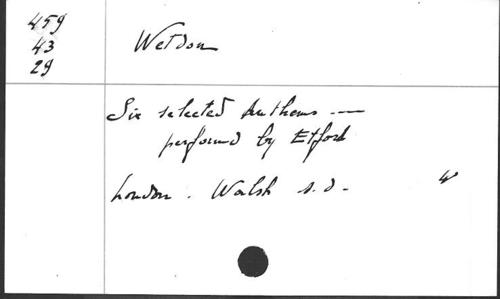 459
43
29
Weldon
Six selected Anthems —
performed by Etford
London. Walsh s.d.
4